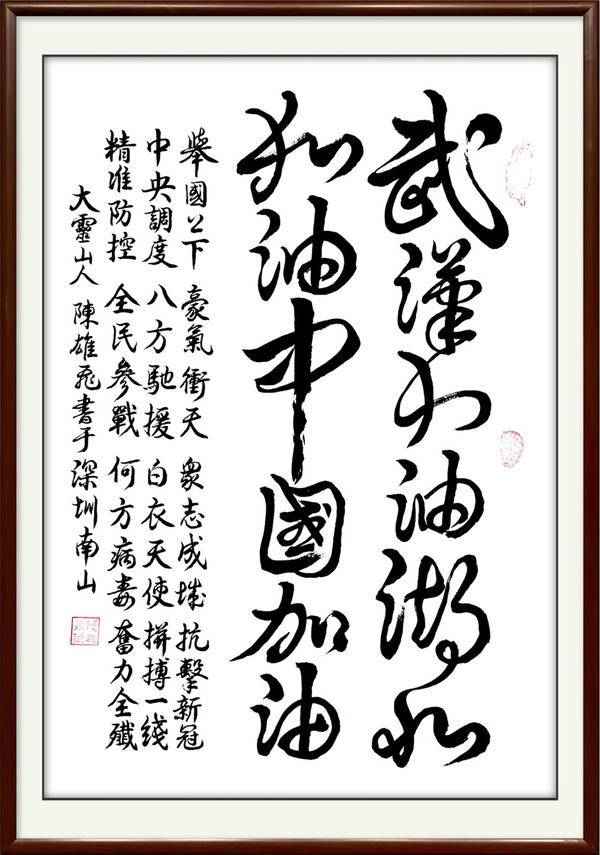 武漢加油湖北
加油中國加油
舉國上下 豪氣衝天 衆志成城 抗擊新冠
中央調度 八方馳援 白衣天使 拼搏一綫
精准防控 全民參戰 何方病毒 奮力全殲
大靈山人 陳雄飛書于深圳南山